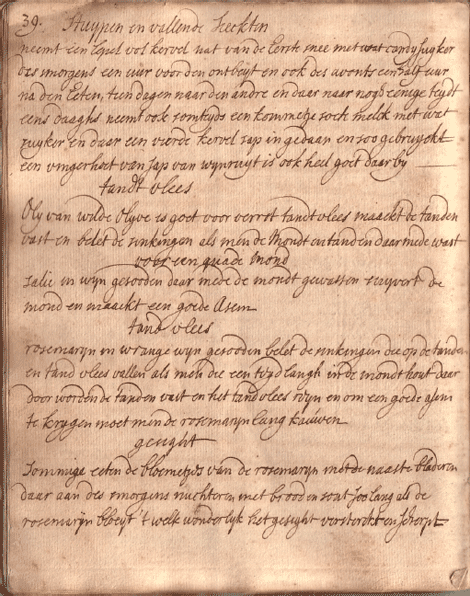 39. Stuypen en vallende Seeckten
neemt een Lepel vol kervel nat van de Eerste snee met wat candy suyker
des smorgens een uur voor den ontbeyt en ook des avonts een half uur
na den Eeten, tien dagen naar den andre en daar naar nog eenige teydt
eens daaghs neemt ook somteyds een kommetje soete melck met wat
suyker en daar een vierde kervel sap in gedaan en soo gebruyckt
een vingerhoet van sap van wynruyt is ook heel goet daar by
tandt vlees
Oly van wilde Olyve is goet voor verrot tandt vlees maackt de tanden
vast en belet de sinkingen als men de Mondt en tanden daar mede wast
voor een quade Mond
salie in wyn gesooden daar mede de mondt gewassen suyvert de
mond en maackt een goede Asem
tand vlees
rosemaryn in wrange wyn gesooden belet de sinkingen die op de tanden
en tand vlees vallen als men die een tyd langh in de mondt hout daar
door worden de tanden vast en het tand vlees en om een goede asem
te krygen moet men de rosemaryn lang kauwen
gesight
Sommige eeten de bloemetjes van de rosemaryn met de naaste bladeren
daar aan des smorgens nuchteren met brood en sout soo lang als de
rosemaryn bloeyt 't welk wonderlyk het gesight versterckt en scherpt